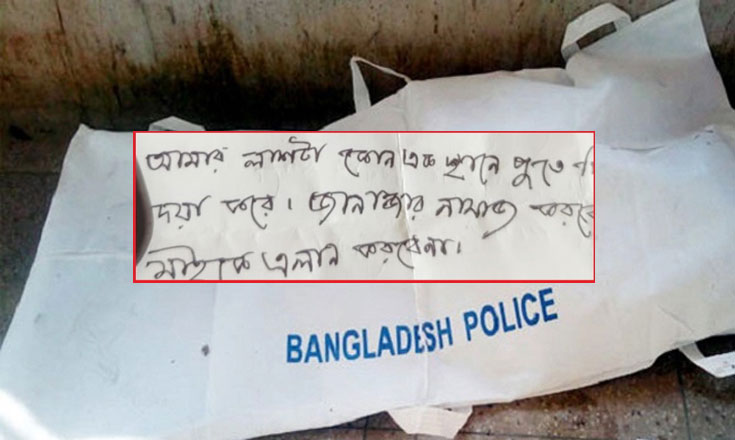 আমার লাশটা কোন এক স্থানে পুতে
দয়া করে। জানাজার নামাজ করবে
মাইকে এলান করবেনা।
BANGLADESH POLICE